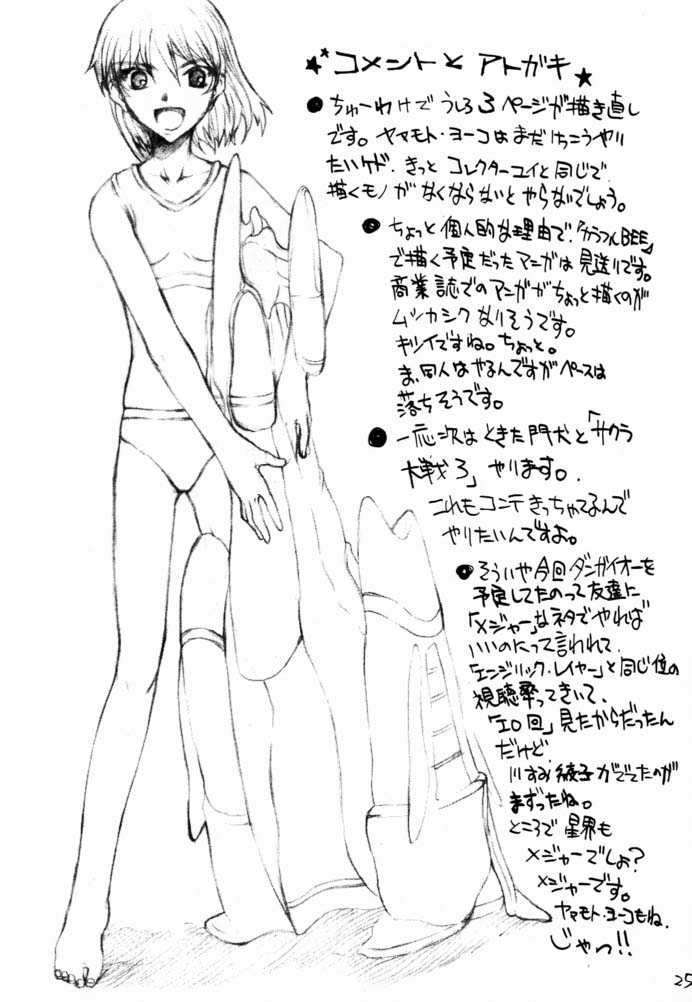 コメントと アトガキ
● ちゅーわけで うしろ3ページが描き直し
です。ヤマモト・ヨーコはまだけっこうやり
たいケド、きっと コレクターユイと同じで
描くモノ が なくならないと やらないでしょう。
● ちょっと個人的な理由で、「カラフルBEE」
で描く予定だったマンガは見送りです。
商業誌でのマンガがちょっと描くのが
ムツカシクなりそうです。
キツイですね。ちょっと。
ま、同人はやるんですがペースは
落ちそうです。
● 一応次は ときた門犬と「サクラ
大戦3」やります。
これもコンテきっちゃてるんで
やりたいんですよ。
● そういや今回ダンガイオーを
予定してたのって友達に
「メジャー」なネタでやれば
いいのにって言われて、
「エンジェリック・レイヤー」と同じ位の
視聴率ってきいて、
「エロ回」見たからだったん
だけど、
川すみ綾子がでてたのが
まずったね。
ところで 星界も
メジャーでしょ?
メジャーです。
ヤマモト・ヨーコもね。
じゃっ!!
25